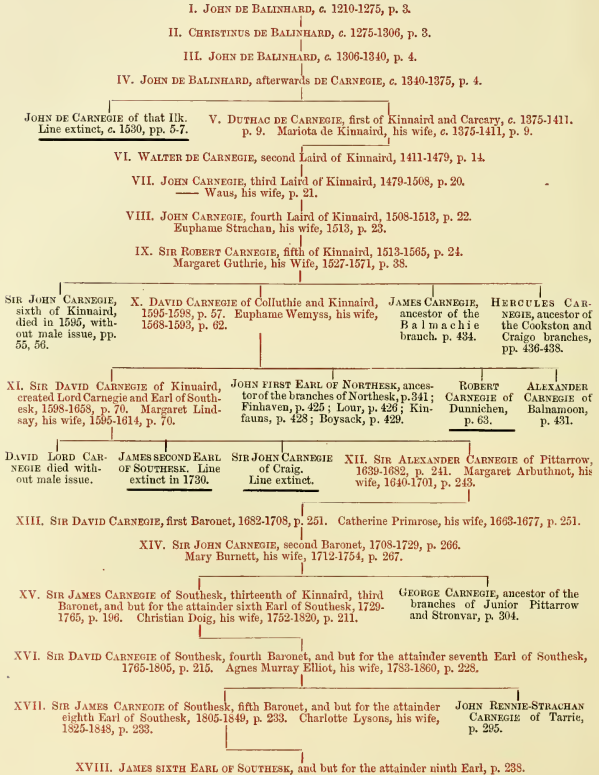 I. JOHN DE BALINHARD, c. 1210-1275, p. 3.
II. CHRISTINUS DE BALINHARD, c. 1275-1306, p. 3.
III. JOHN DE BALINHARD, c. 1306-1340, p. 4.
IV. JOHN DE BALINHARD, afterwards DE CARNEGIE, c. 1340-1375, p. 4.
JOHN DE CARNEGIE of that Ilk.
Line extinct, c. 1530, pp. 5-7.
V. DUTHAC DE CARNEGIE, first of Kinnaird and Carcary, c. 1375-1411.
p. 9. Mariota de Kinnaird, his wife, c. 1375-1411, p. 9.
VI. WALTER DE CARNEGIE, second Laird of Kinnaird, 1411-1479, p. 14.
VII. JOHN CARNEGIE, third Laird of Kinnaird, 1479-1508, p. 20.
—— Waus, his wife, p. 21.
VIII. JOHN CARNEGIE, fourth Laird of Kinnaird, 1508-1513, p. 22.
Euphame Strachan, his wife, 1513, p. 23.
IX. SIR ROBERT CARNEGIE, fifth of Kinnaird, 1513-1565, p. 24.
Margaret Guthrie, his Wife, 1527-1571, p. 38.
SIR JOHN CARNEGIE,
sixth of Kinnaird,
died in 1595, with-
out male issue, pp.
55, 56.
X. DAVID CARNEGIE of Colluthie and Kinnaird,
1595-1598, p. 57. Euphame Wemyss, his wife,
1568-1593, p. 62.
JAMES CARNEGIE,
ancestor of the
Balmachie
branch. p. 434.
HERCULES CAR-
NEGIE, ancestor of
the Cookston and
Craigo branches,
pp. 436-438.
XI. SIR DAVID CARNEGIE of Kinnaird,
created Lord Carnegie and Earl of South-
esk, 1598-1658, p. 70. Margaret Lind-
say, his wife, 1595-1614, p. 70.
JOHN FIRST EARL OF NORTHESK, ances-
tor of the branches of Northesk, p. 341;
Finhaven, p. 425; Lour, p. 426; Kin-
fauns, p. 428; Boysack, p. 429.
ROBERT
CARNEGIE of
Dunnichen,
p. 63.
ALEXANDER
CARNEGIE of
Balnamoon,
p. 431.
DAVID LORD CAR-
NEGIE died with-
out male issue.
JAMES SECOND EARL
OF SOUTHESK. Line
extinct in 1730.
SIR JOHN CARNEGIE
of Craig.
Line extinct.
XII. SIR ALEXANDER CARNEGIE of Pittarrow,
1639-1682, p. 241. Margaret Arbuthnot, his
wife, 1640-1701, p. 243.
XIII. SIR DAVID CARNEGIE, first Baronet, 1682-1708, p. 251. Catherine Primrose, his wife, 1663-1677, p. 251.
XIV. SIR JOHN CARNEGIE, second Baronet, 1708-1729, p. 266.
Mary Burnett, his wife, 1712-1754, p. 267.
XV. SIR JAMES CARNEGIE of Southesk, thirteenth of Kinnaird, third
Baronet, and but for the attainder sixth Earl of Southesk, 1729-
1765, p. 196. Christian Doig, his wife, 1752-1820, p. 211.
GEORGE CARNEGIE, ancestor of the
branches of Junior Pittarrow
and Stronvar, p. 304.
XVI. SIR DAVID CARNEGIE of Southesk, fourth Baronet, and but for the attainder seventh Earl of Southesk,
1765-1805, p. 215. Agnes Murray Elliot, his wife, 1783-1860, p. 228.
XVII. SIR JAMES CARNEGIE of Southesk, fifth Baronet, and but for the attainder
eighth Earl of Southesk, 1805-1849, p. 233. Charlotte Lysons, his wife,
1825-1848, p. 233.
JOHN RENNIE-STRACHAN
CARNEGIE of Tarrie,
p. 295.
XVIII. JAMES SIXTH EARL OF SOUTHESK, and but for the attainder ninth Earl, p. 238.